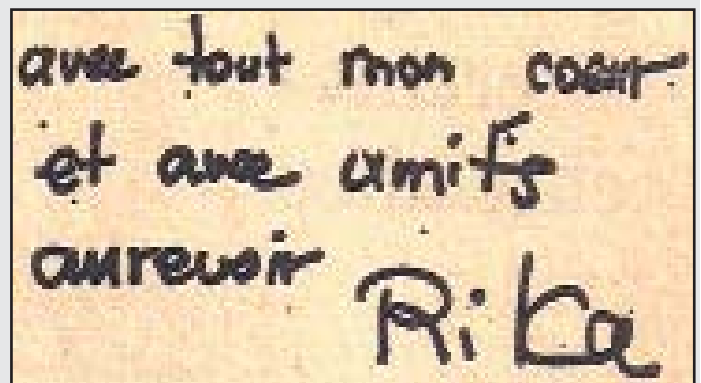 avec tout mon coeur
et avec amitfs
aurevoir
Rika